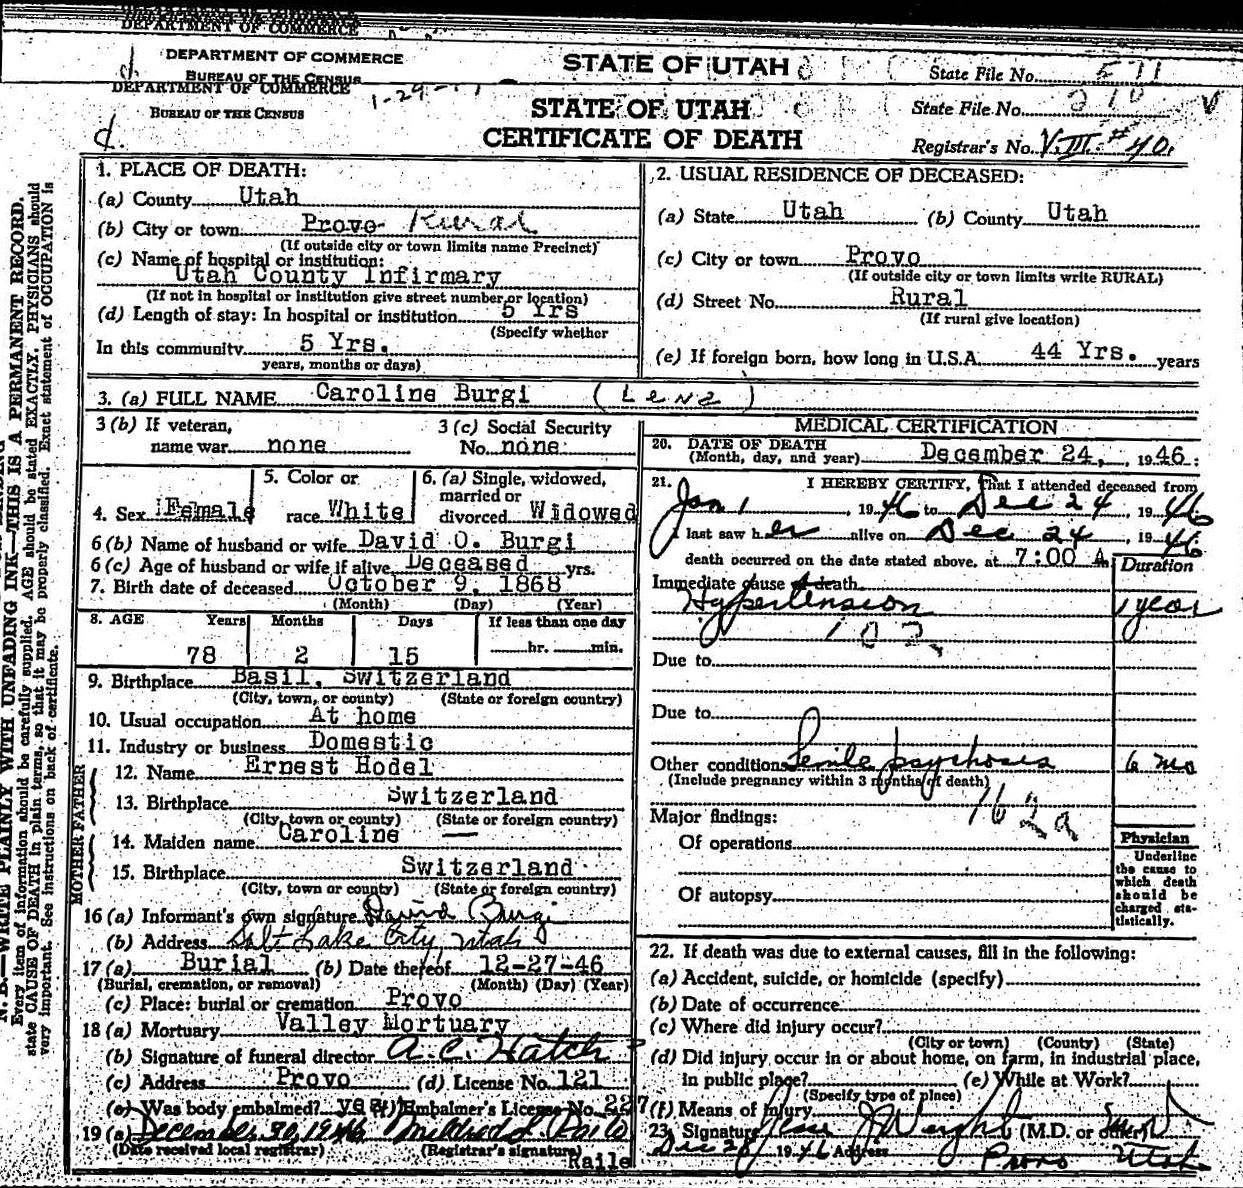 DEPARTMENT OF COMMERCE
DEPARTMENT OF COMMERCE
BUREAU OF THE CENSUS
STATE OF UTAH
State File No.
DEPARTMENT OF COMMERCE
BUREAU OF THE CENSUS
d.
STATE OF UTAH
CERTIFICATE OF DEATH
State File No.
Registrar's No. V. III. # 40.
N. B.—WRITE PLAINLY WITH UNFADING INK—THIS IS A PERMANENT RECORD.
Every item of information should be carefully supplied. AGE should be stated EXACTLY. PHYSICIANS should
state CAUSE OF DEATH in plain terms, so that it may be properly classified. Exact statement of OCCUPATION is
very important. See instructions on back of certificate.
1. PLACE OF DEATH:
(a) County Utah
(b) City or town Provo Rural
(If outside city or town limits name Precinct)
(c) Name of hospital or institution:
Utah County Infirmary
(If not in hospital or institution give street number or location)
(d) Length of stay: In hospital or institution 5 Yrs
(Specify whether
In this community 5 Yrs.
years, months or days)
2. USUAL RESIDENCE OF DECEASED:
(a) State Utah (b) County Utah
(c) City or town Provo
(If outside city or town limits write RURAL)
(d) Street No. Rural
(If rural give location)
(e) If foreign born, how long in U.S.A. 44 Yrs. years
3. (a) FULL NAME Caroline Burgi (Lena)
3 (b) If veteran,
name war none
3 (c) Social Security
No. none
4. Sex Female
5. Color or
race White
6. (a) Single, widowed,
married or
divorced Widowed
6 (b) Name of husband or wife David O. Burgi
6 (c) Age of husband or wife if alive Deceased yrs.
7. Birth date of deceased October 9, 1868
(Month) (Day) (Year)
8. AGE Years Months Days If less than one day
78 2 15 hr. min.
9. Birthplace Basil, Switzerland
(City, town, or county) (State or foreign country)
10. Usual occupation At home
11. Industry or business Domestic
FATHER
12. Name Ernest Hodel
13. Birthplace Switzerland
(City, town or county) (State or foreign country)
MOTHER
14. Maiden name Caroline —
15. Birthplace Switzerland
(City, town or county) (State or foreign country)
16 (a) Informant's own signature David Burgi
(b) Address Salt Lake City, Utah
17 (a) Burial (b) Date thereof 12-27-46
(Burial, cremation, or removal) (Month) (Day) (Year)
(c) Place: burial or cremation Provo
18 (a) Mortuary Valley Mortuary
(b) Signature of funeral director A. C. Hatch
(c) Address Provo (d) License No. 121
(e) Was body embalmed? yes (f) Embalmer's License No. 227
19 (a) December 30, 1946 Mildred L. Raile
(Date received local registrar) (Registrar's signature)
Raile
MEDICAL CERTIFICATION
20. DATE OF DEATH
(Month, day, and year) December 24, 1946
21. I HEREBY CERTIFY, That I attended deceased from
Jan 1, 1946 to Dec 24, 1946
I last saw her alive on Dec 24, 1946
death occurred on the date stated above, at 7:00 A.
Duration
Immediate cause of death
Hypertension 1 year
102
Due to
Due to
Other conditions Senile psychosis 6 mo
(Include pregnancy within 3 months of death)
162a
Major findings:
Of operations
Of autopsy
Physician
Underline
the cause to
which death
should be
charged sta-
tistically.
22. If death was due to external causes, fill in the following:
(a) Accident, suicide, or homicide (specify)
(b) Date of occurrence
(c) Where did injury occur?
(City or town) (County) (State)
(d) Did injury occur in or about home, on farm, in industrial place,
in public place? (e) While at Work?
(Specify type of place)
(f) Means of Injury
23. Signature J Weight (M.D. or other)
Dec 1946 Address Provo Utah